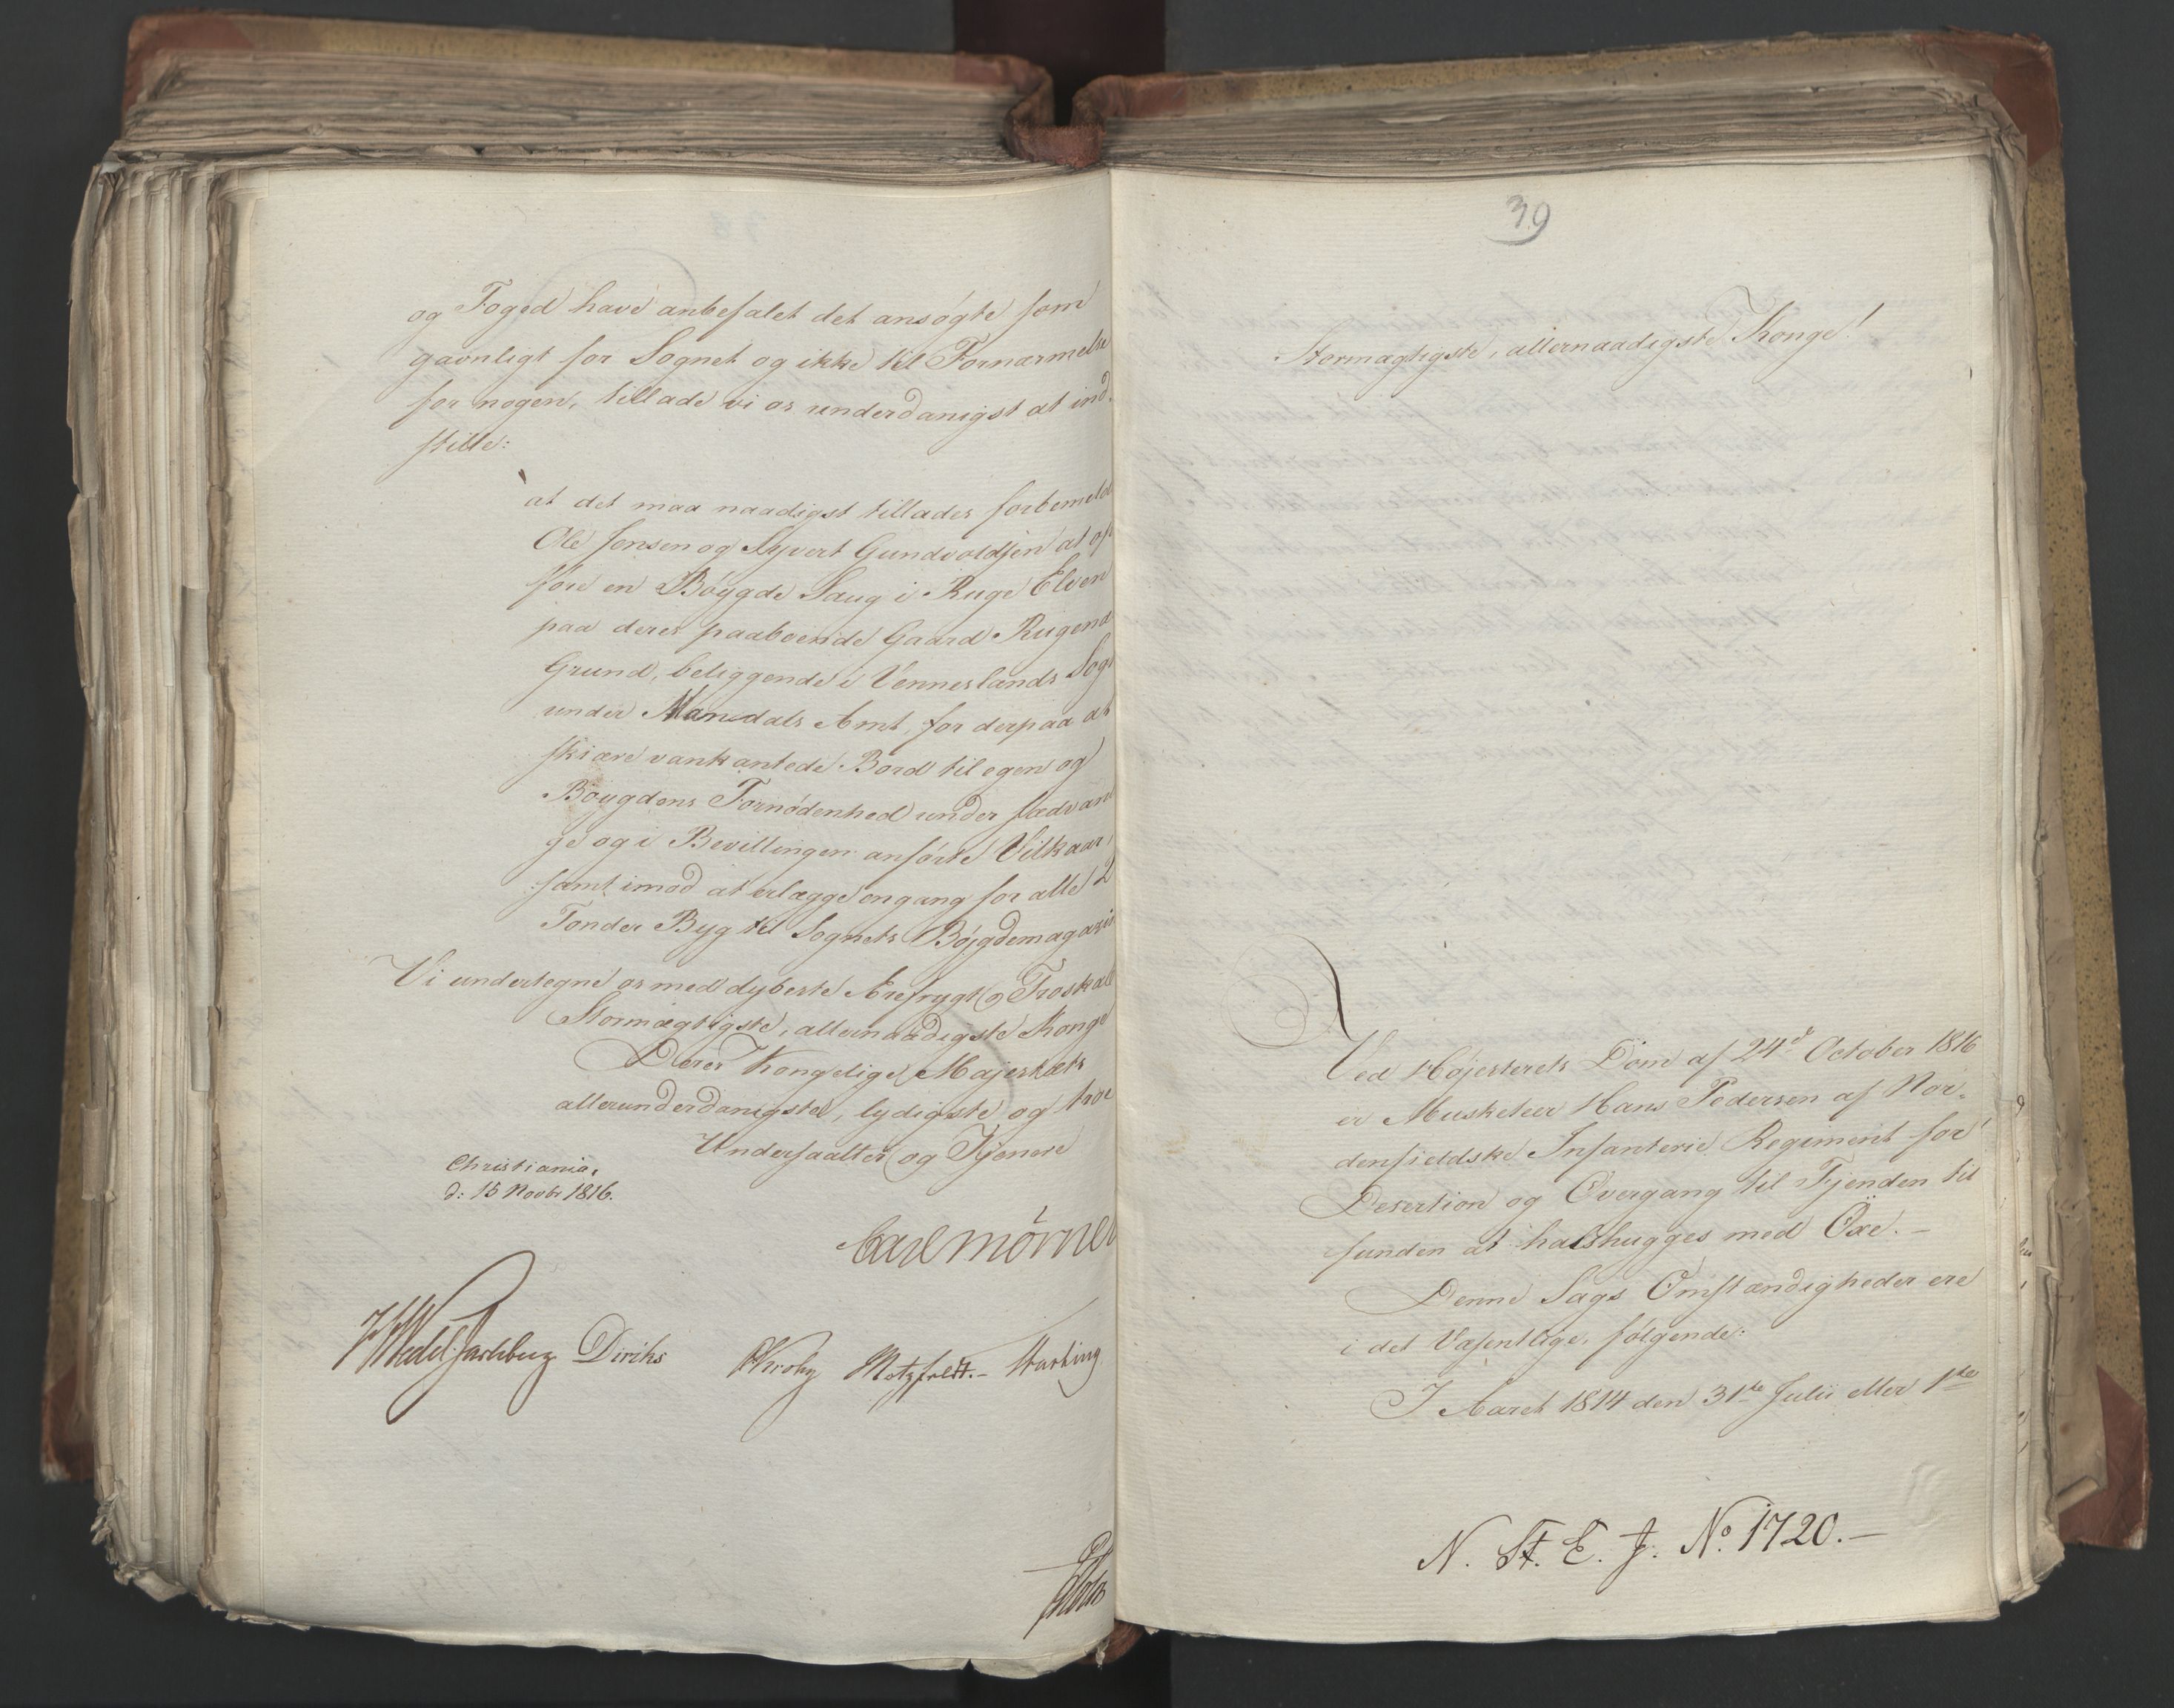 og Foged have anbefalet det ansøgte som
gavnligt for Sognet og ikke til Fornærmelse
for nogen, tillade vi os underdanigst at ind-
stille:
at det maa naadigst tillades forbemeldte
Ole Jensen og Syvert Gundvoldsen at op
føre en Bøygde Saug i Ruge Elven
paa deres paaboende Gaard Rugend
Grund, beliggende i Venneslands Sogn
under Mandals Amt, for derpaa at
skiære vankantede Bord til egen og
Bøygdens Fornødenhed under sædvan
ge og i Bevillingen anførte Vilkaar,
samt imod at erlægge engang for alle 2
Tønder Byg til Sognets Bøjgdemagazin
Vi undertegne os med dybeste Ærefrygt og Troskab
Stormægtigste, allernaadigste Konge
Deres Kongelige Majestæts
allerunderdanigste, lydigste og troe
Undersaatter og Tjenere
Christiania,
d: 15 Novbr 1816.
Carl Mörner
Wedel Jarlsberg Diriks Krohg Motzfeldt.- Harbing
39
Stormægtigste, allernaadigste Konge!
Ved Højesterets Dom af 24d October 1816
er Musketeer Hans Pedersen af Nor-
denfieldske Infanterie Regiment for
Desertion og Overgang til Fjenden til
funden at halshugges med Öxe. -
Denne Sags Omstændigheder ere
i det Væsentlige, følgende:
I Aaret 1814 den 31te Julii eller 1ste
N. St. E. J. No. 1720.-